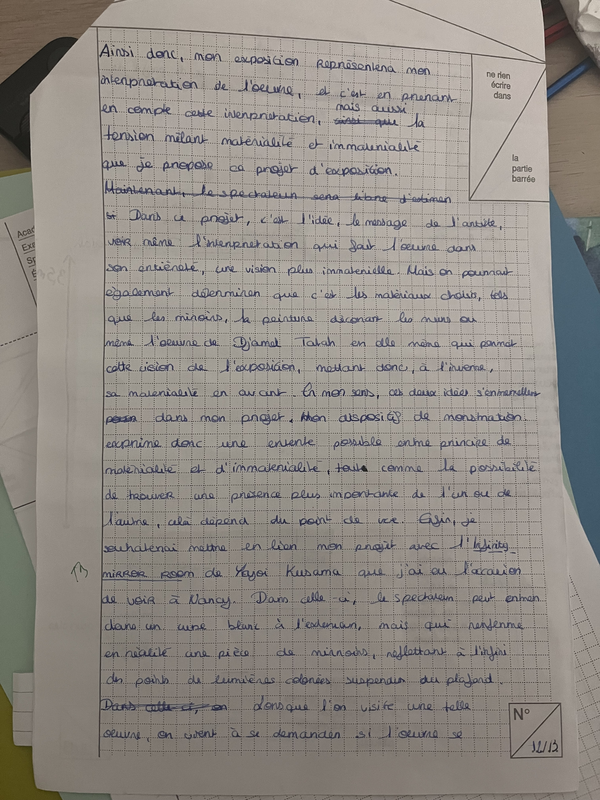 Ainsi donc, mon exposition représentera mon
interprétation de l'oeuvre, et c'est en prenant
en compte cette interprétation, ~~ainsi que~~ mais aussi la
tension mêlant matérialité et immatérialité
que je propose ce projet d'exposition.
~~Maintenant, le spectateur sera libre d'estimer~~
~~si~~ Dans ce projet, c'est l'idée, le message de l'artiste,
voir même l'interprétation qui fait l'oeuvre dans
son entièreté, une vision plus immatérielle. Mais on pourrait
également déterminer que c'est les matériaux choisis, tels
que les miroirs, la peinture décorant les murs ou
même l'oeuvre de Djamel Tatah en elle même qui permet
cette vision de l'exposition, mettant donc, à l'inverse,
sa matérialité en avant. En mon sens, ces deux idées s'entremêlent
dans mon projet. Mon dispositif de monstration
exprime donc une entente possible entre principe de
matérialité et d'immatérialité, tout comme la possibilité
de trouver une présence plus importante de l'un ou de
l'autre, celà dépend du point de vue. Enfin, je
souhaiterai mettre en lien mon projet avec l'Infinity
MIRROR ROOM de Yayoi Kusama que j'ai eu l'occasion
de voir à Nancy. Dans celle-ci, le spectateur peut entrer
dans un cube blanc à l'extérieur, mais qui renferme
en réalité une pièce de miroirs, reflettant à l'infini
des points de lumières colorées suspendus du plafond.
~~Dans celle ci, on~~ Lorsque l'on visite une telle
oeuvre, on vient à se demander si l'oeuvre se
ne rien
écrire
dans
la
partie
barrée
N°
12/13
Aca
Ex
Sp